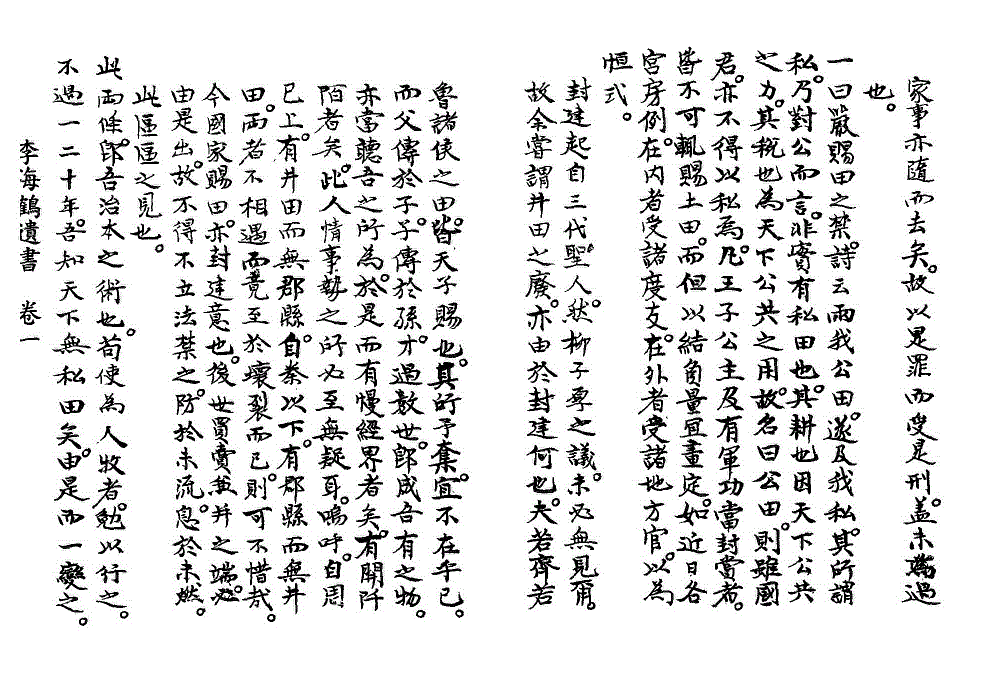 家事亦隨而去矣。故以是罪而受是刑。盖未爲過
也。
一曰嚴賜田之禁。詩云雨我公田。遂及我私。其所謂
私。乃對公而言。非實有私田也。其耕也因天下公共
之力。其稅也為天下公共之用。故名曰公田。則雖國
君。亦不得以私為。凡王子公主及有軍功當封賞者。
皆不可輒賜土田。而但以結負量宜畫定。如近日各
宮房例。在內者受諸度支。在外者受諸地方官。以為
恒式。
封建起自三代聖人。然柳子厚之議。未必無見爾。
故余嘗謂井田之廢。亦由於封建何也。夫若齊若
魯諸侯之田。皆天子賜也。其所予奪。宜不在乎已。
而父傳於子。子傳於孫。才過數世。卽成吾有之物。
亦當聽吾之所為。於是而有慢經界者矣。有開阡
陌者矣。此人情事勢之所必至無疑耳。嗚呼。自周
已上。有井田而無郡縣。自秦以下。有郡縣而無井
田。兩者不相遇。而竟至於壞裂而已。則可不惜哉。
今國家賜田。亦封建意也。後世買賣兼并之端。必
由是出。故不得不立法禁之。防於未流。息於未燃。
此區區之見也。
此兩條。卽吾治本之術也。苟使為人牧者。勉以行之。
不過一二十年。吾知天下無私田矣。由是而一變之。
李海鶴遺書 卷一